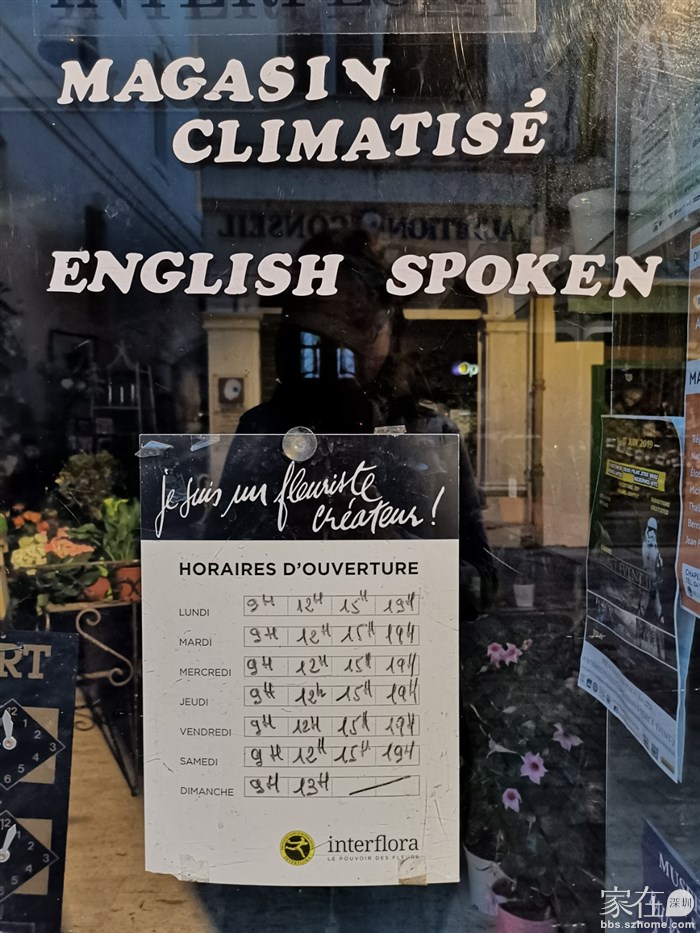 MAGASIN
CLIMATISÉ
ENGLISH SPOKEN
je suis un fleuriste
créateur!
HORAIRES D'OUVERTURE
LUNDI 9H 12H 15H 19H
MARDI 9H 12H 15H 19H
MERCREDI 9H 12H 15H 19H
JEUDI 9H 12h 15H 19H
VENDREDI 9H 12H 15H 19H
SAMEDI 9H 12H 15H 19H
DIMANCHE 9H 13H
interflora
LE POUVOIR DES FLEURS
JUIN 2019
家在 深圳
bbs.szhome.com